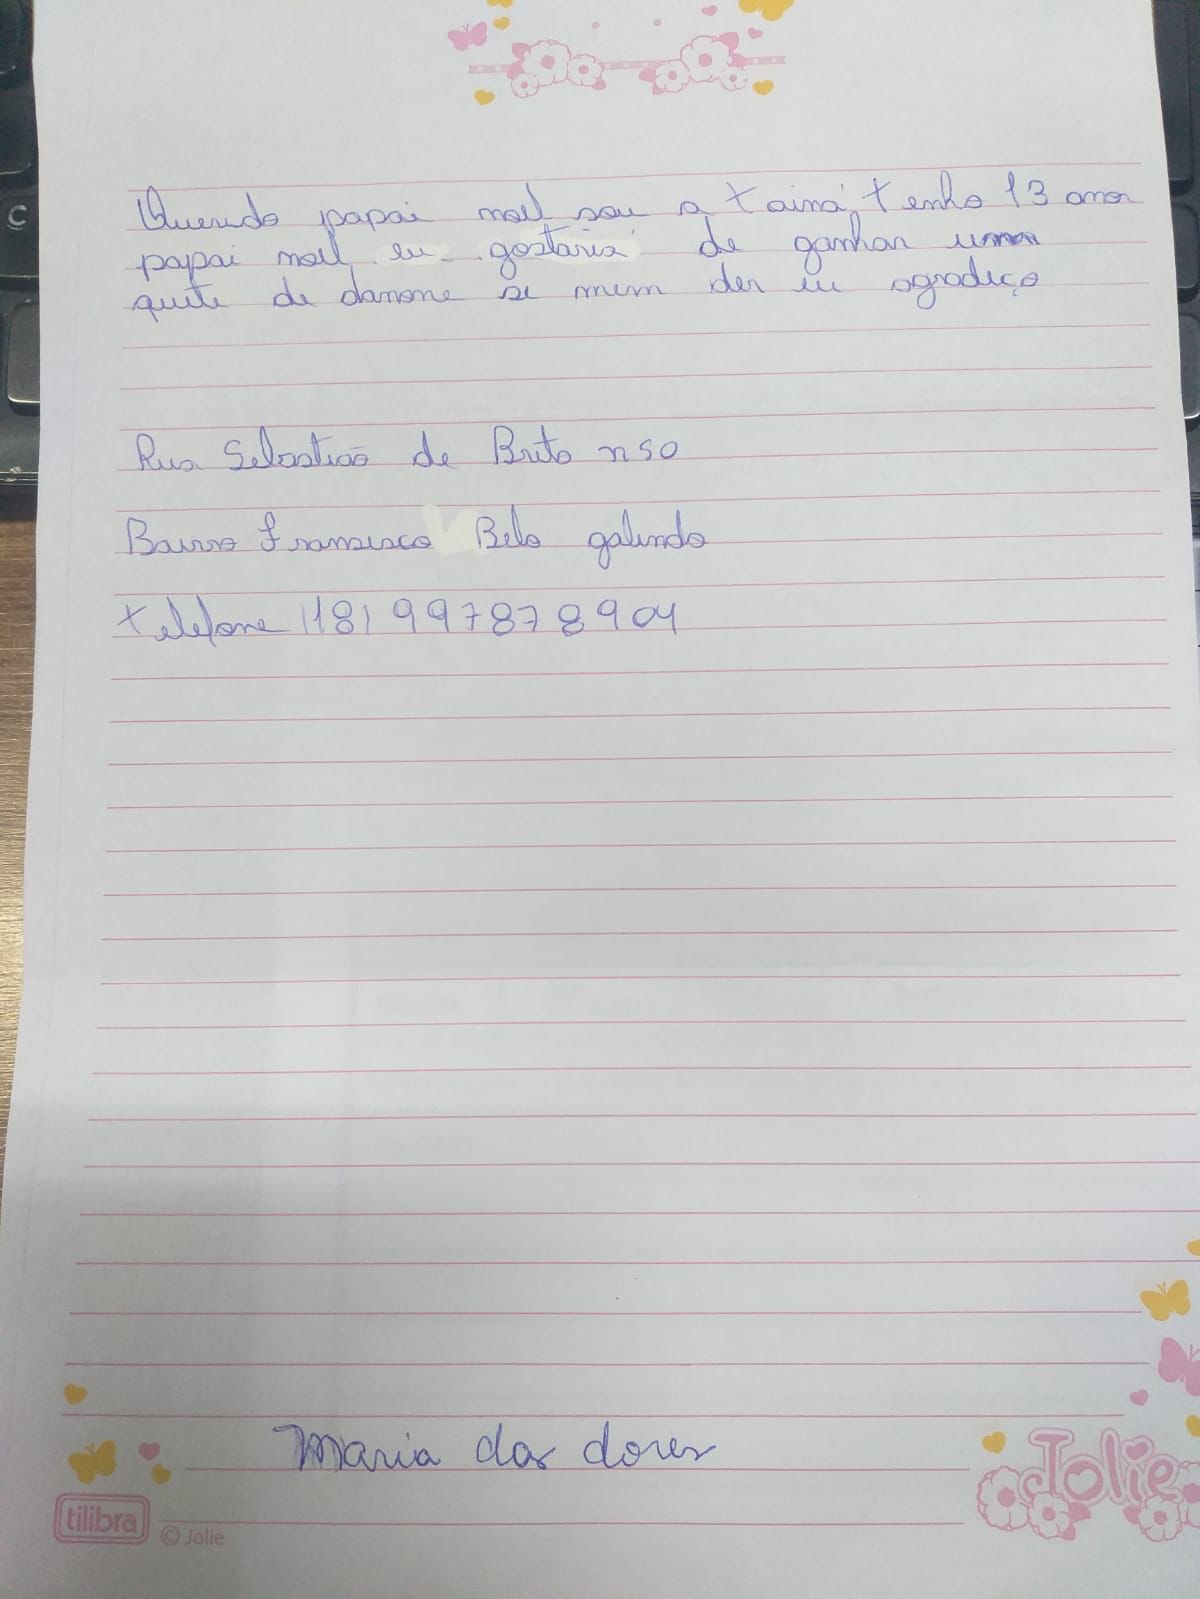 Querido papai noel sou a tainá, tenho 13 anos
papai noel eu gostaria de ganhar um
quite de danone se mim der eu agradeço
Rua Sebastião de Brito n 50
Bairro Francisco Belo galindo
telefone (18) 997878904
Maria das dores
tilibra
© Jolie
Jolie
C